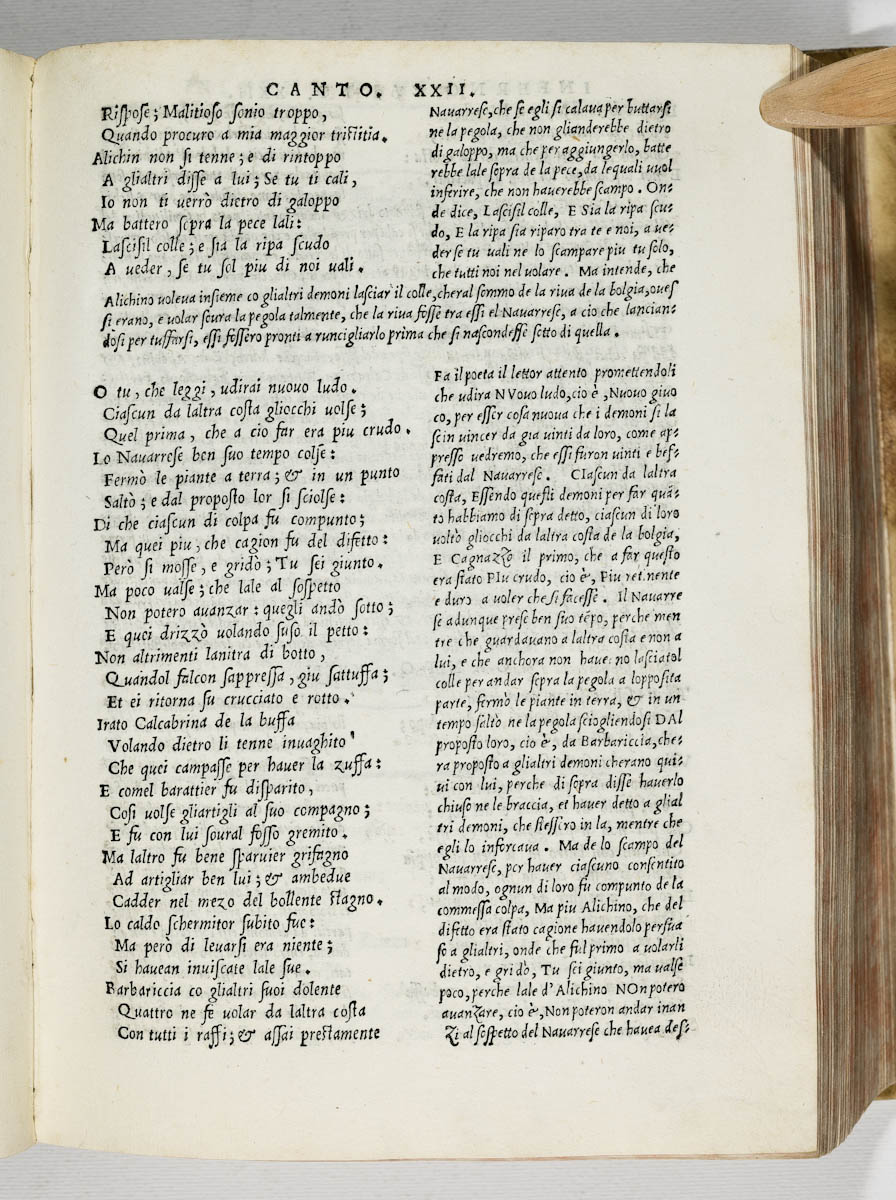 CANTO. XXII.
Rispose; Malitioso sonio troppo,
Quando procuro a mia maggior tristitia.
Alichin non si tenne; e di rintoppo
A glialtri disse a lui; Se tu ti cali,
Io non ti uerrò dietro di galoppo
Ma battero sopra la pece lali:
Lascisil colle; e sia la ripa scudo
A ueder, se tu sol piu di noi uali.
Nauarrese, che se egli si calaua per buttarsi
ne la pegola, che non glianderebbe dietro
di galoppo, ma che per aggiungerlo, batte
rebbe lale sopra de la pece, da lequali uuol
inferire, che non hauerebbe scampo. On-
de dice, Lascisil colle, E Sia la ripa scu-
do, E la ripa sia riparo tra te e noi, a ue-
der se tu uali ne lo scampare piu tu solo,
che tutti noi nel uolare. Ma intende, che
Alichino uoleua insieme co glialtri demoni lasciar il colle, cheral sommo de la riua de la bolgia, oues
si erano, e uolar scura la pegola talmente, che la riua fosse tra essi el Nauarrese, a cio che lancian-
dosi per tuffarsi, essi fossero pronti a runcigliarlo prima che si nascondesse sotto di quella.
O tu, che leggi, udirai nuouo ludo.
Ciascun da laltra costa gliocchi uolse;
Quel prima, che a cio far era piu crudo.
Lo Nauarrese ben suo tempo colse:
Fermò le piante a terra; & in un punto
Saltò; e dal proposto lor si sciolse:
Di che ciascun di colpa fu compunto;
Ma quei piu, che cagion fu del difetto:
Però si mosse, e gridò; Tu sei giunto.
Ma poco ualse; che lale al sospetto
Non potero auanzar: quegli andò sotto;
E quei drizzò uolando suso il petto:
Non altrimenti lanitra di botto,
Quandol falcon sappressa, giu sattuffa;
Et ei ritorna su crucciato e rotto.
Irato Calcabrina de la buffa
Volando dietro li tenne inuaghito
Che quei campasse per hauer la zuffa:
E comel barattier fu disparito,
Cosi uolse gliartigli al suo compagno;
E fu con lui soural fosso gremito.
Ma laltro fu bene sparuier grifagno
Ad artigliar ben lui; & ambedue
Cadder nel mezo del bollente stagno.
Lo caldo schermitor subito fue:
Ma però di leuarsi era niente;
Si hauean inuiscate lale sue.
Barbariccia co glialtri suoi dolente
Quattro ne fe uolar da laltra costa
Con tutti i raffi; & assai prestamente
Fa il poeta il lettor attento promettendoli
che udira NVouo ludo, cio è, Nuouo giuo
co, per esser cosa nuoua che i demoni si la
scin uincer da gia uinti da loro, come ap-
presso uedremo, che essi furon uinti e bef-
fati dal Nauarrese. CIascun da laltra
costa, Essendo questi demoni per far quā-
to habbiamo di sopra detto, ciascun di loro
uoltò gliocchi da laltra costa de la bolgia,
E Cagnazzo il primo, che a far questo
era stato PIu crudo, cio è, Piu retinente
e duro a uoler che si facesse. Il Nauarre
se adunque prese ben suo tēpo, perche men
tre che guardauano a laltra costa e non a
lui, e che anchora non haueano lasciatol
colle per andar sopra la pegola a lopposita
parte, fermò le piante in terra, & in un
tempo saltò ne la pegola sciogliendosi DAl
proposto loro, cio è, da Barbariccia, che-
ra proposto a glialtri demoni cherano qui-
ui con lui, perche di sopra disse hauerlo
chiuso ne le braccia, et hauer detto a glial
tri demoni, che stessero in la, mentre che
egli lo inforcaua. Ma de lo scampo del
Nauarrese, per hauer ciascuno consentito
al modo, ognun di loro fu compunto de la
commessa colpa, Ma piu Alichino, che del
difetto era stato cagione hauendolo persua
so a glialtri, onde che ful primo a uolarli
dietro, e gridò, Tu sei giunto, ma ualse
poco, perche lale d'Alichino NOn potero
auanzare, cio è, Non poteron andar inan
Zi al sospetto del Nauarrese che hauea des-